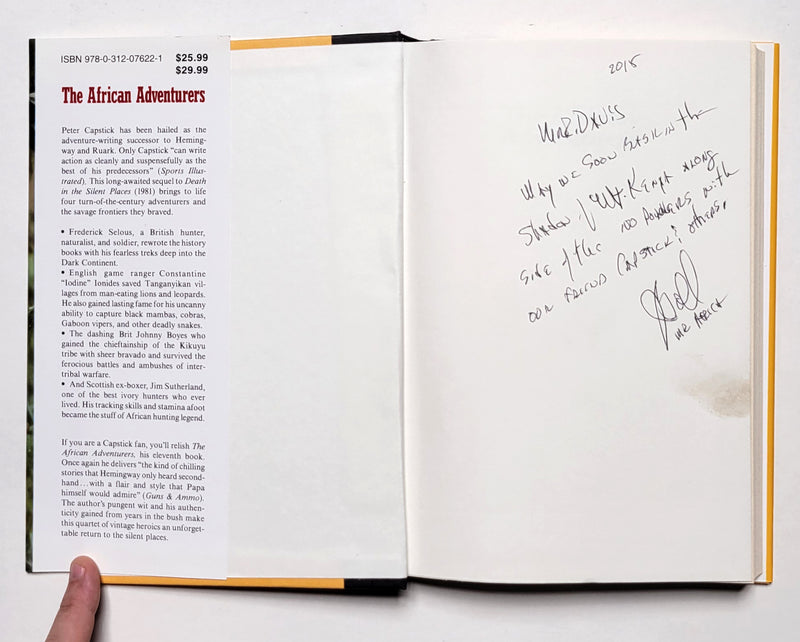 ISBN 978-0-312-07622-1 $25.99
$29.99
The African Adventurers
Peter Capstick has been hailed as the
adventure-writing successor to Heming-
way and Ruark. Only Capstick “can write
action as cleanly and suspensefully as the
best of his predecessors” (Sports Illus-
trated). This long-awaited sequel to Death
in the Silent Places (1981) brings to life
four turn-of-the-century adventurers and
the savage frontiers they braved.
• Frederick Selous, a British hunter,
naturalist, and soldier, rewrote the history
books with his fearless treks deep into the
Dark Continent.
• English game ranger Constantine
“Iodine” Ionides saved Tanganyikan vil-
lages from man-eating lions and leopards.
He also gained lasting fame for his uncanny
ability to capture black mambas, cobras,
Gaboon vipers, and other deadly snakes.
• The dashing Brit Johnny Boyes who
gained the chieftainship of the Kikuyu
tribe with sheer bravado and survived the
ferocious battles and ambushes of inter-
tribal warfare.
• And Scottish ex-boxer, Jim Sutherland,
one of the best ivory hunters who ever
lived. His tracking skills and stamina afoot
became the stuff of African hunting legend.
If you are a Capstick fan, you’ll relish The
African Adventurers, his eleventh book.
Once again he delivers “the kind of chilling
stories that Hemingway only heard second-
hand...with a flair and style that Papa
himself would admire” (Guns & Ammo).
The author’s pungent wit and his authen-
ticity gained from years in the bush make
this quartet of vintage heroics an unforget-
table return to the silent places.
2015
DAVIS
MAY WE SOON BASK IN the
Shadow of Mt. KENYA ALONG
SIDE of the 100 POUNDERS with
OUR FRIEND CAPSTICK & OTHERS.
MR AFRICA